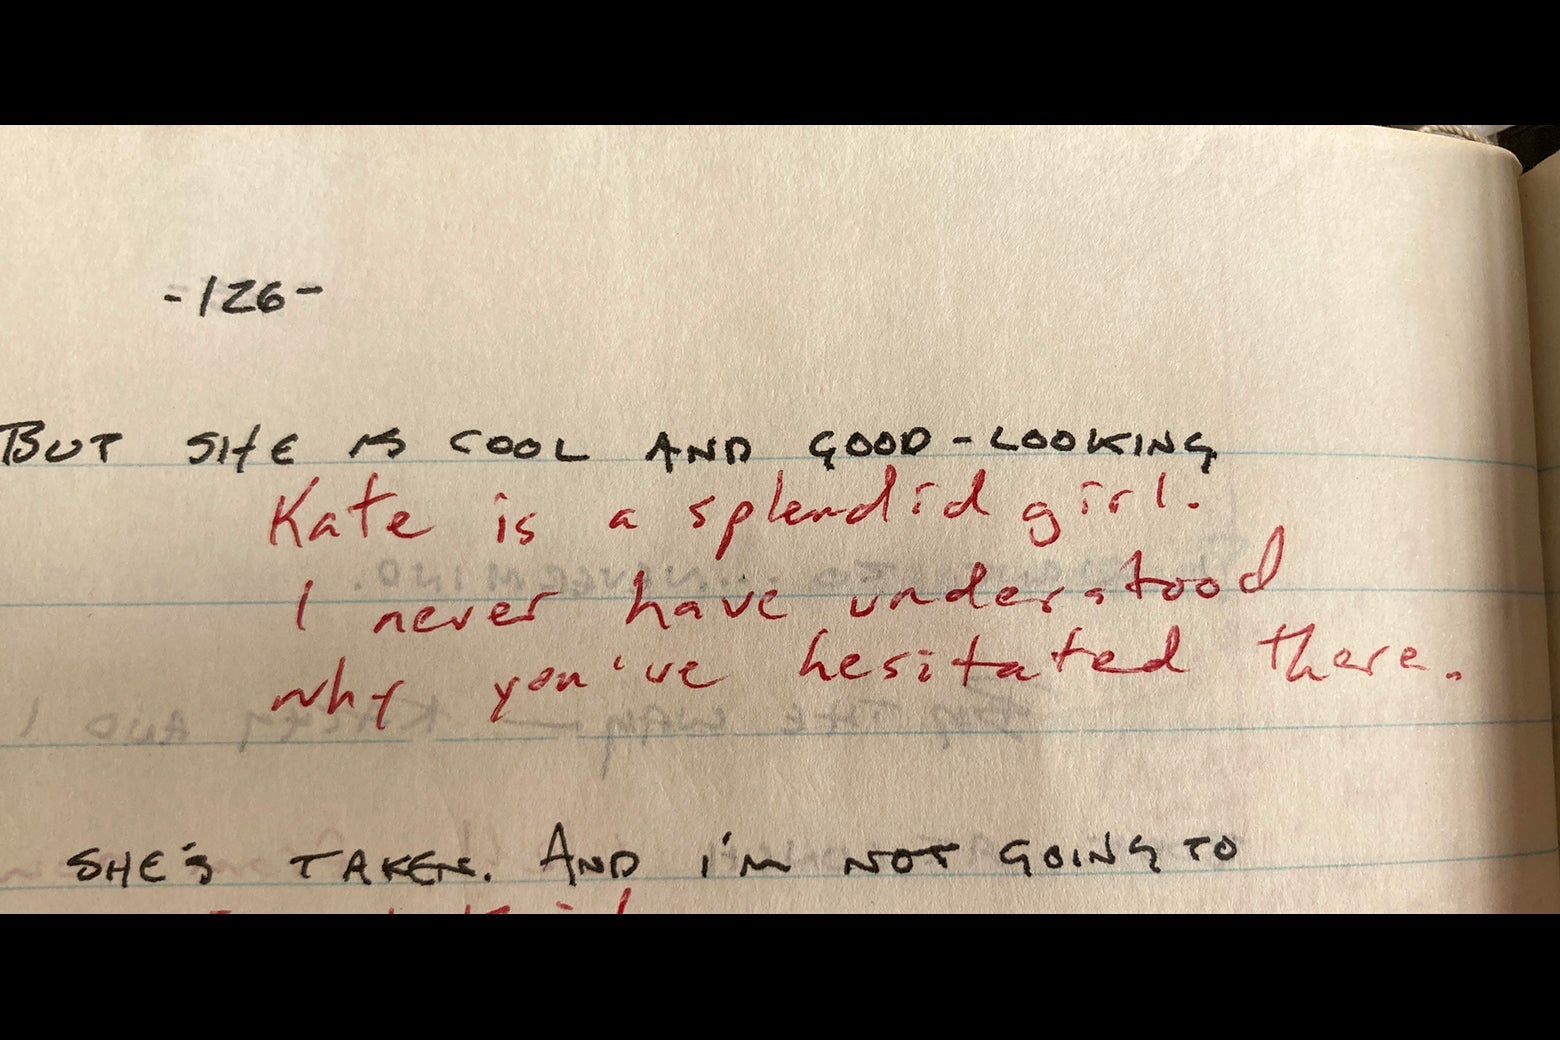 -126-
BUT SHE IS COOL AND GOOD-LOOKING
Kate is a splendid girl.
I never have understood
why you've hesitated there.
SHE'S TAKEN. AND I'M NOT GOING TO